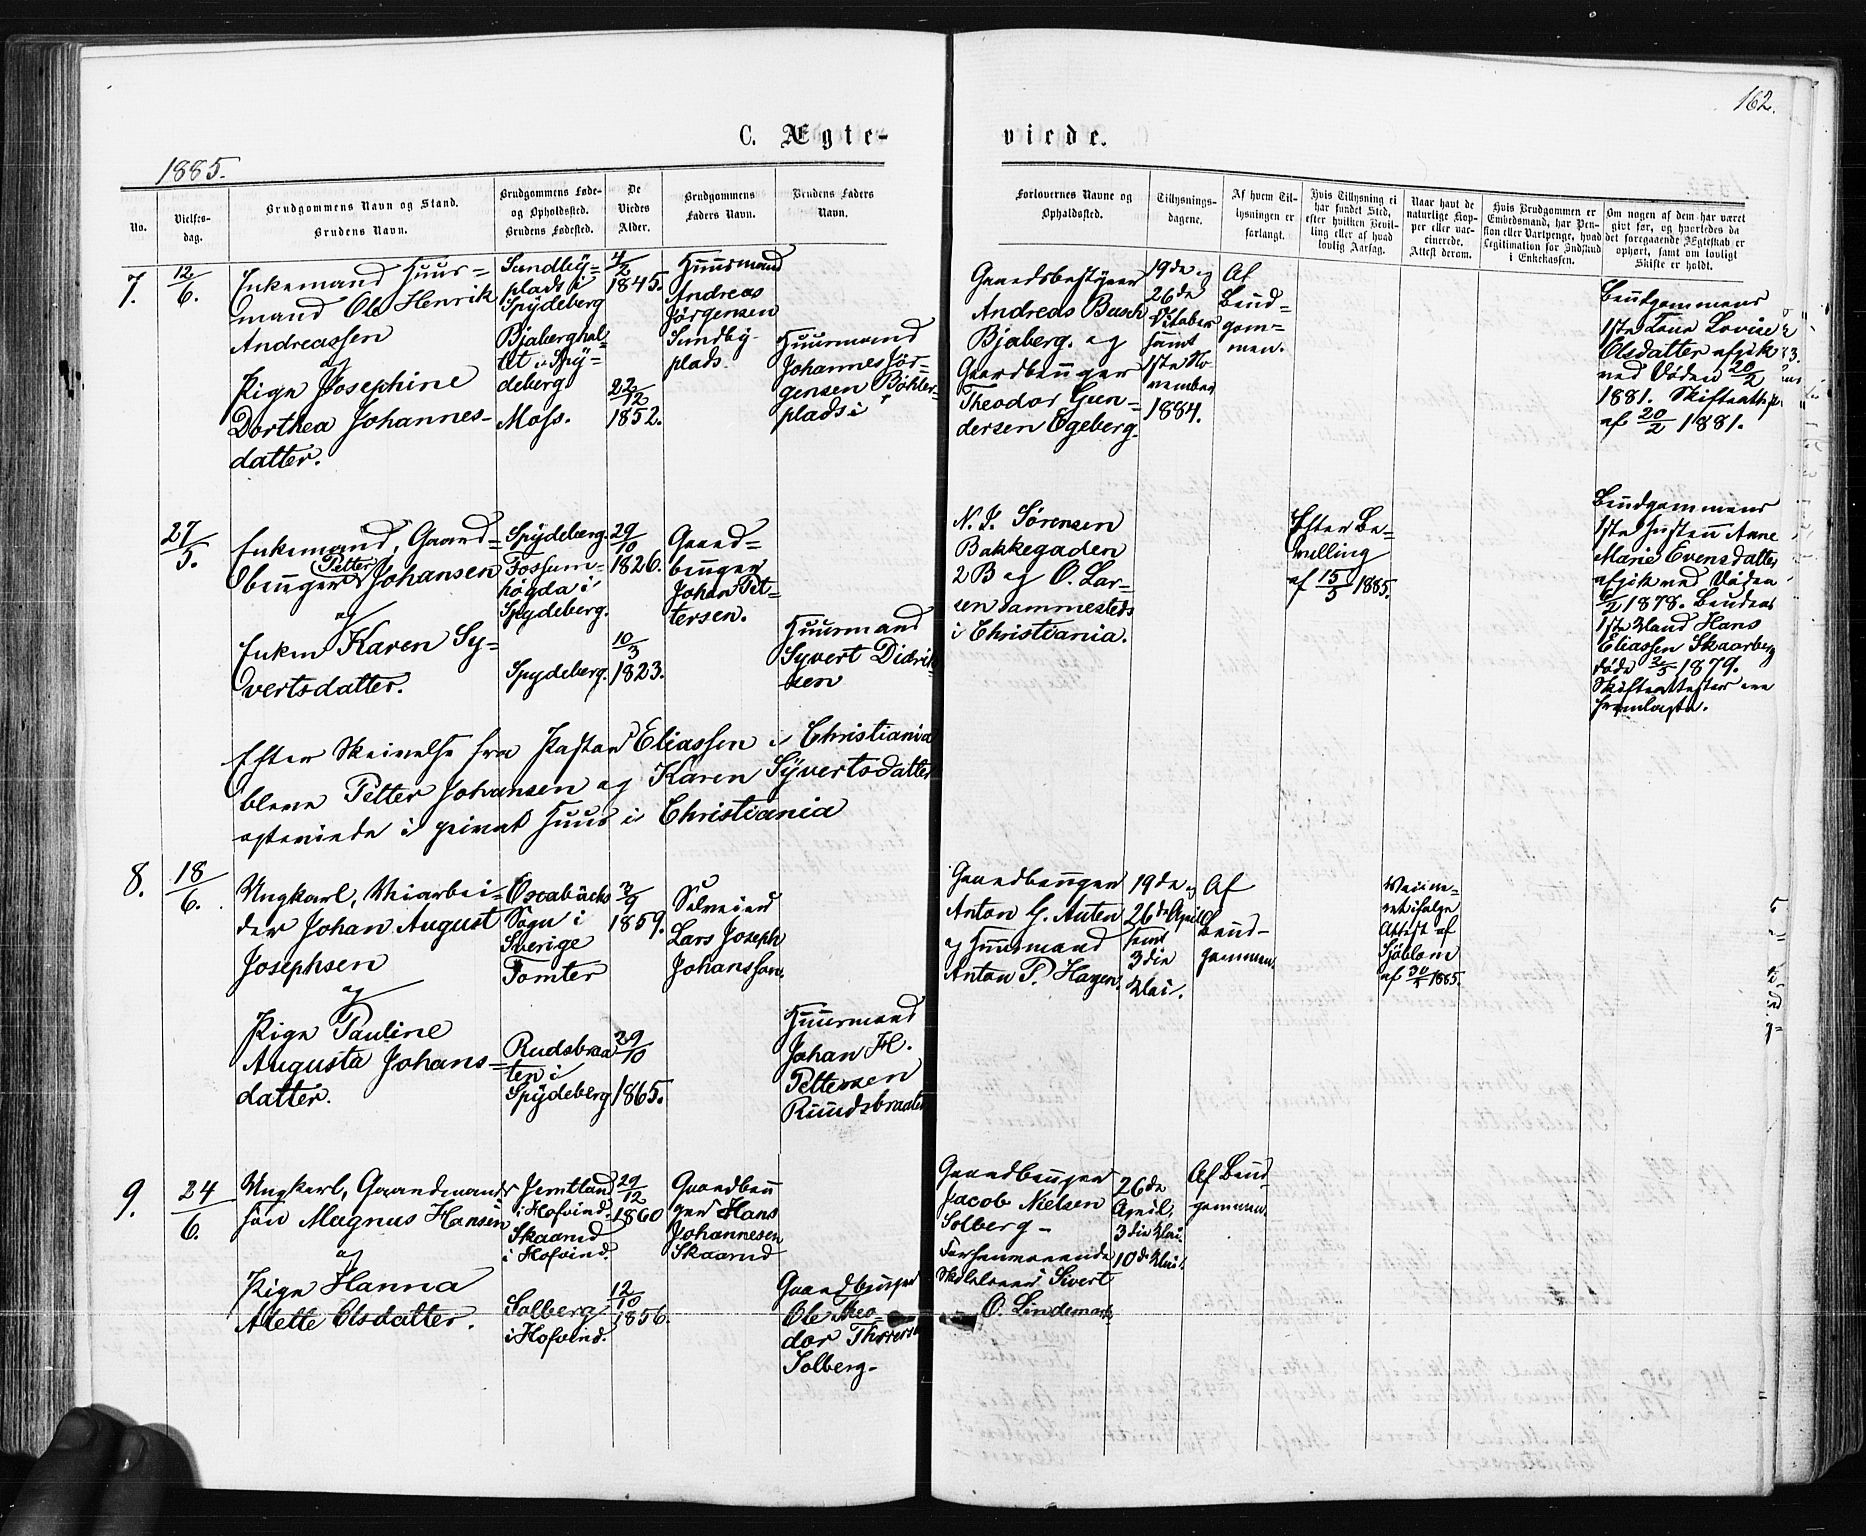 162.
C. Ægte-
viede.
1885.
No.
Vielses-
dag.
Brudgommens Navn og Stand.
Brudens Navn.
Brudgommens Føde-
og Opholdssted.
Brudens Fødested.
De
Viedes
Alder.
Brudgommens
Faders Navn.
Brudens Faders
Navn.
Forlovernes Navne og
Opholdssted.
Tillysnings-
dagene.
Af hvem Til-
lysningen er
forlangt.
Hvis Tillysning ei
har fundet Sted,
efter hvilken Bevil-
ling eller af hvad
lovlig Aarsag.
Naar havt de
naturlige Kop-
per eller vac-
cinerede.
Attest derom.
Hvis Brudgommen er
Embedsmand, har Pen-
sion eller Vartpenge, hvad
Legitimation for Indskud
i Enkekassen.
Om nogen af dem har været
givt før, og hvorledes da
det foregaaende Ægteskab er
ophørt, samt om lovligt
Skifte er holdt.
7.
12/6.
Enkemand Huus=
mand Ole Henrik
Andreassen
og
Pige Josephine
Dorthea Johannes-
datter.
Sundby-
plads i
Spydeberg
Bjaberghol-
tet i Spy=
deberg
Moss.
4/2
1845.
22/12
1852.
Huusmand
Andreas
Jörgensen
Sundby-
plads.
Huusmand
Johannes Jör-
gensen Böhler-
plads i
Gaardsbestyrer
Andreas Busch
Bjaberg. og
Gaardbruger
Theodor Gun-
dersen Egeberg.
19de og
26de
October
samt
1ste No
vember
1884.
Af
Brud-
gom=
men.
Brudgommens
1ste Kone Lovise
Olsdatter afgik
ved Döden 20/2
1881. Skifteattest
af 20/2 1881.
27/5.
Enkemand, Gaard=
bruger Petter Johansen
og
Enken Karen Sy-
vertsdatter.
Spydeberg
Fossum-
högda i
Spydeberg.
Spydeberg.
29/10
1826.
10/3
1823.
Gaard=
bruger
Johan Pet-
tersen.
Huusmand
Syvert Didrik-
sen
N. J. Sörensen
Bakkegaden
2B og O. Lar-
sen sammesteds
i Christiania.
Efter Be-
villing
af 15/5 1885.
Brudgommens
1ste Hustru Anne
Marie Evensdatter
afgik ved Döden
6/2 1878. Brudens
1ste Mand Hans
Eliassen Skaarberg
döde 2/5 1879.
Skifteattester ere
fremlagte.
Efter Skrivelse fra Pastor Eliassen i Christiania
bleve Petter Johansen og Karen Syvertsdatter
egteviede i privat Huus i Christiania
8.
18/6.
Ungkarl, Veiarbei-
der Johan August
Josephsen
og
Pige Pauline
Augusta Johans-
datter.
Sogn i
Sverige
Tomter
Rudsbraa
ten i
Spydeberg
3/9
1859.
29/10
1865.
Selveier
Lars Joseph
Johansson.
Huusmand
Johan H.
Pettersen
Ruudsbraaten
Gaardbruger
Anton G. Auten
og Huusmand
Anton P. Hagen.
19de og
26de April
samt
3die
Mai.
Af
Brud-
gommen.
Vaccine-
ret ifölge
Attest af
Sjöblom
af 30/4 1885.
9.
24/6.
Ungkarl, Gaardmands
sön Magnus Hansen
og
Pige Hanna
Alette Olsdatter.
Jemtland
i Hofvind.
Skaarud
i Hofvind.
Solberg
i Hofvind.
29/12
1860
12/10
1856.
Gaardbru
ger Hans
Johannesen
Skaarud
Gaardbruger
Ole Theo-
dor Thorersen
Solberg-
Gaardbruger
Jacob Nielsen
Solberg-
Forhenværende
Skolelærer Sivert
O. Lindemark.
26de
April,
3die Mai.
10de Mai.
Af Brud-
gommen.